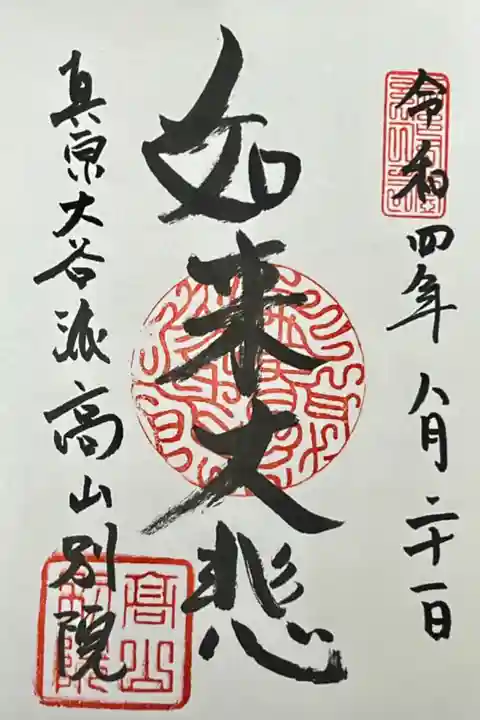 令和四年八月二十一日
如来大悲
真宗大谷派高山別院
高山別院